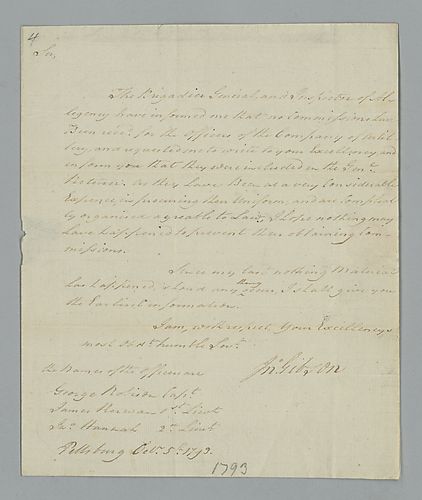 4
Sir,
The Brigadier General, and Inspector of Al-
legeney have informed me that no Commissions have
Been recd. for the Officers of the Company of Artil-
lery, and requested me to write to your Excellency and
inform you that they were included in the Genl.
Returns. As they have Been at a very Considerable
Expence in procuring their Uniform, and are Compleat
ly organised agreeable to Law, I hope nothing may
have happened to prevent their obtaining Com-
missions.
Since my last nothing Material
has happened, should any thing occur, I shall give you
the Earliest information.
I am, with respect Your Excellency's
most Obdt. humble Servt.
Jno. Gibson
the Names of the Officers are
George Robison Capt.
James 1st. Lieut
Jno. Hannah 2d. Lieut
Pittsburg Octr. 5th. 1793.
1793